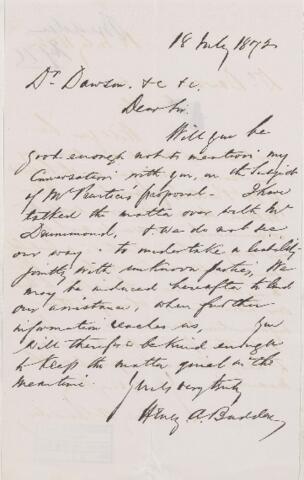 18 July 1872
Dr Dawson. &c &c.
Dear Sir.
Will you be
good enough not to mention my
Conversation with you, on the subject
of Mr proposal - I have
talked the matter over with Mr
Drummond, & we do not see
our way - to undertake a liability
jointly with unknown parties, We
may be induced hereafter to lend
our assistance, when further
information reaches us, You
will therefore be kind enough
to keep the matter quiet in the
meantime.
Yours very truly
Henry A. Budden